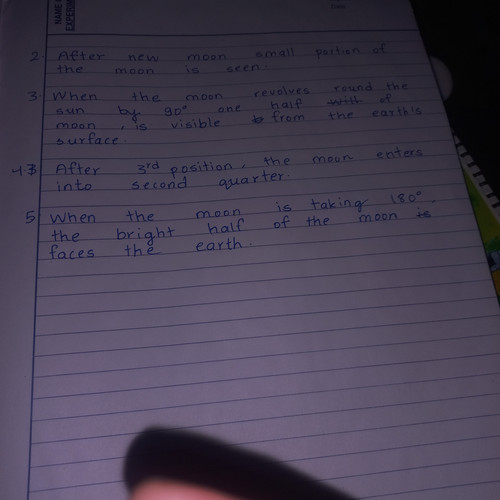 NAME
EXPERIM
2. After new moon small portion of
the moon is seen.
3 When the moon revolves round the
sun by 90° one half will of
moon, is visible from the earth's
surface.
4. After 3rd position, the moon enters
into second quarter.
5 When the moon is taking 180°.
the bright half of the moon is
faces the earth.